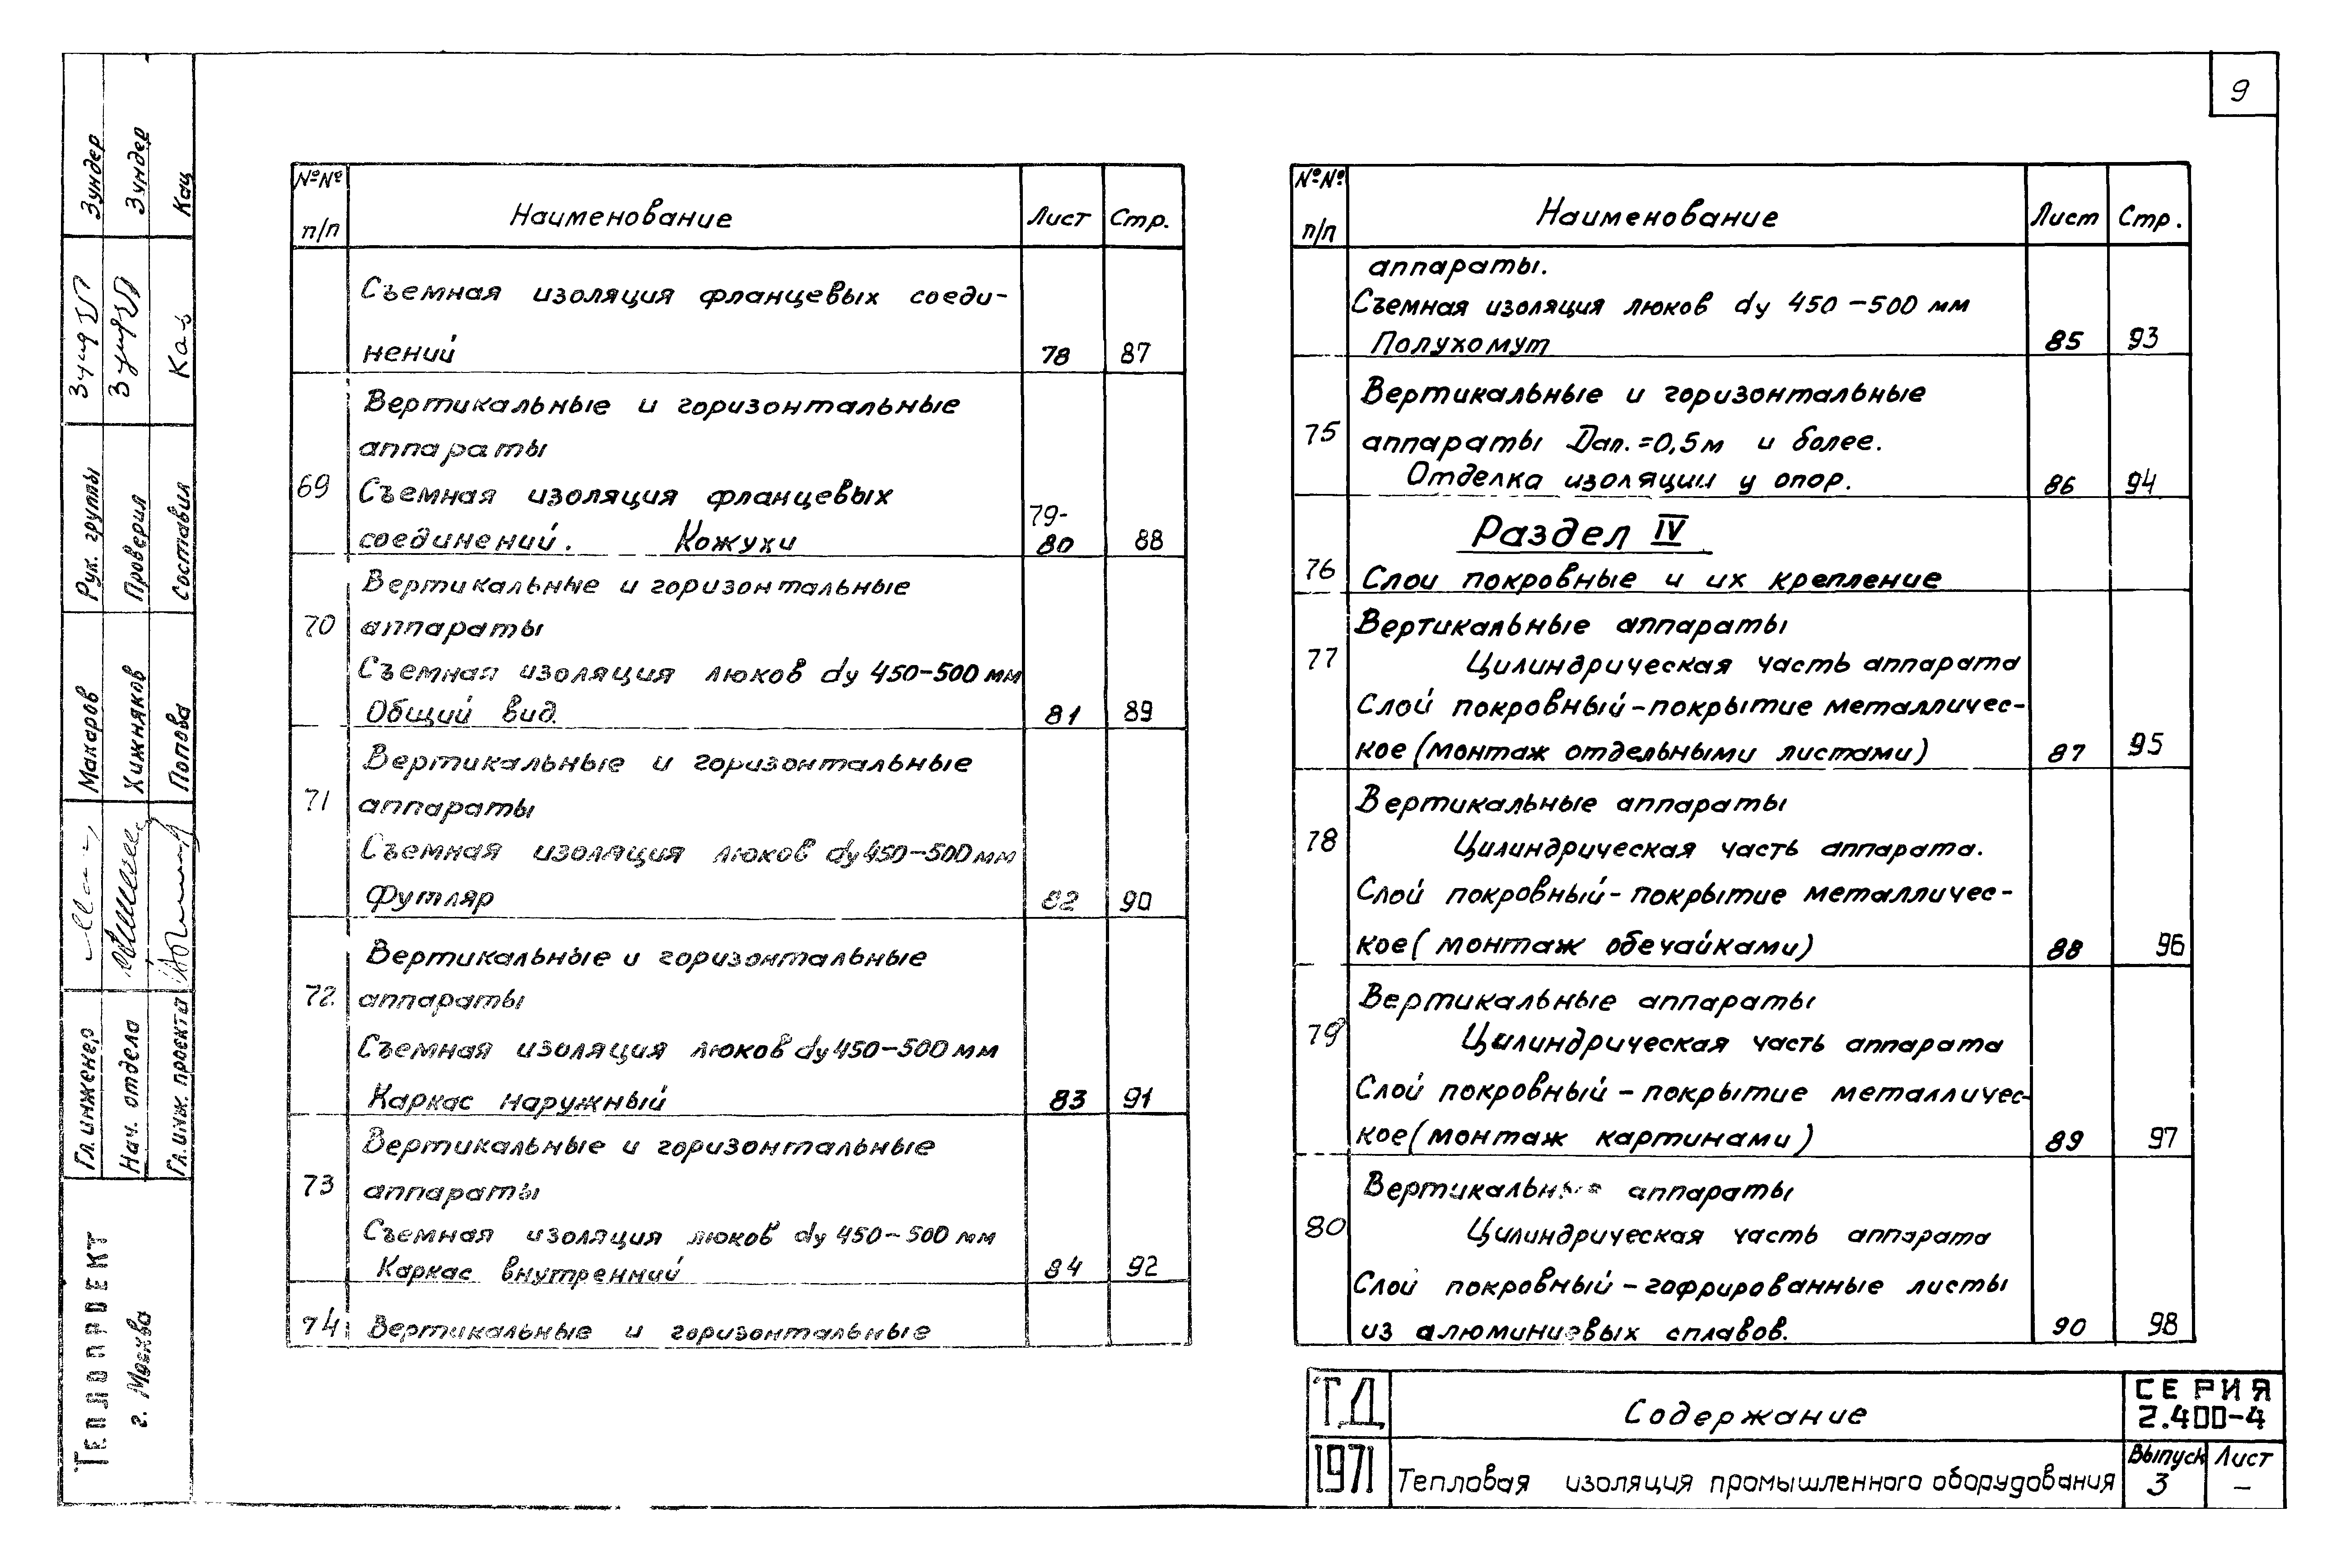 9
№№ п/п Наименование Лист Стр.
Съемная изоляция фланцевых соеди-
нений 78 87
Вертикальные и горизонтальные
аппараты
69 Съемная изоляция фланцевых
соединений. Кожухи 79-80 88
Вертикальные и горизонтальные
70 аппараты
Съемная изоляция люков dу 450-500 мм
Общий вид. 81 89
Вертикальные и горизонтальные
71 аппараты
Съемная изоляция люков dу 450-500 мм
Футляр 82 90
Вертикальные и горизонтальные
72 аппараты
Съемная изоляция люков dу 450-500 мм
Каркас наружный 83 91
Вертикальные и горизонтальные
73 аппараты
Съемная изоляция люков dу 450-500 мм
Каркас внутренний 84 92
74 Вертикальные и горизонтальные
№№ п/п Наименование Лист Стр.
аппараты.
Съемная изоляция люков dу 450-500 мм
Полухомут 85 93
Вертикальные и горизонтальные
75 аппараты Dап.=0,5м и более.
Отделка изоляции у опор. 86 94
Раздел IV
76 Слои покровные и их крепление
Вертикальные аппараты
77 Цилиндрическая часть аппарата
Слой покровный-покрытие металличес-
кое (монтаж отдельными листами) 87 95
Вертикальные аппараты
78 Цилиндрическая часть аппарата.
Слой покровный-покрытие металличес-
кое (монтаж обечайками) 88 96
Вертикальные аппараты
79 Цилиндрическая часть аппарата
Слой покровный-покрытие металличес-
кое (монтаж картинами) 89 97
Вертикальные аппараты
80 Цилиндрическая часть аппарата
Слой покровный-гофрированные листы
из алюминиевых сплавов. 90 98
ТД Содержание СЕРИЯ
2.400-4
1971 Тепловая изоляция промышленного оборудования Выпуск 3 Лист –
Теплопроект
г. Москва
Гл. инженер Макаров Рук. группы Зундер
Нач. отдела Хижняков Проверил Зундер
Гл. инж. проекта Попова Составил Кац